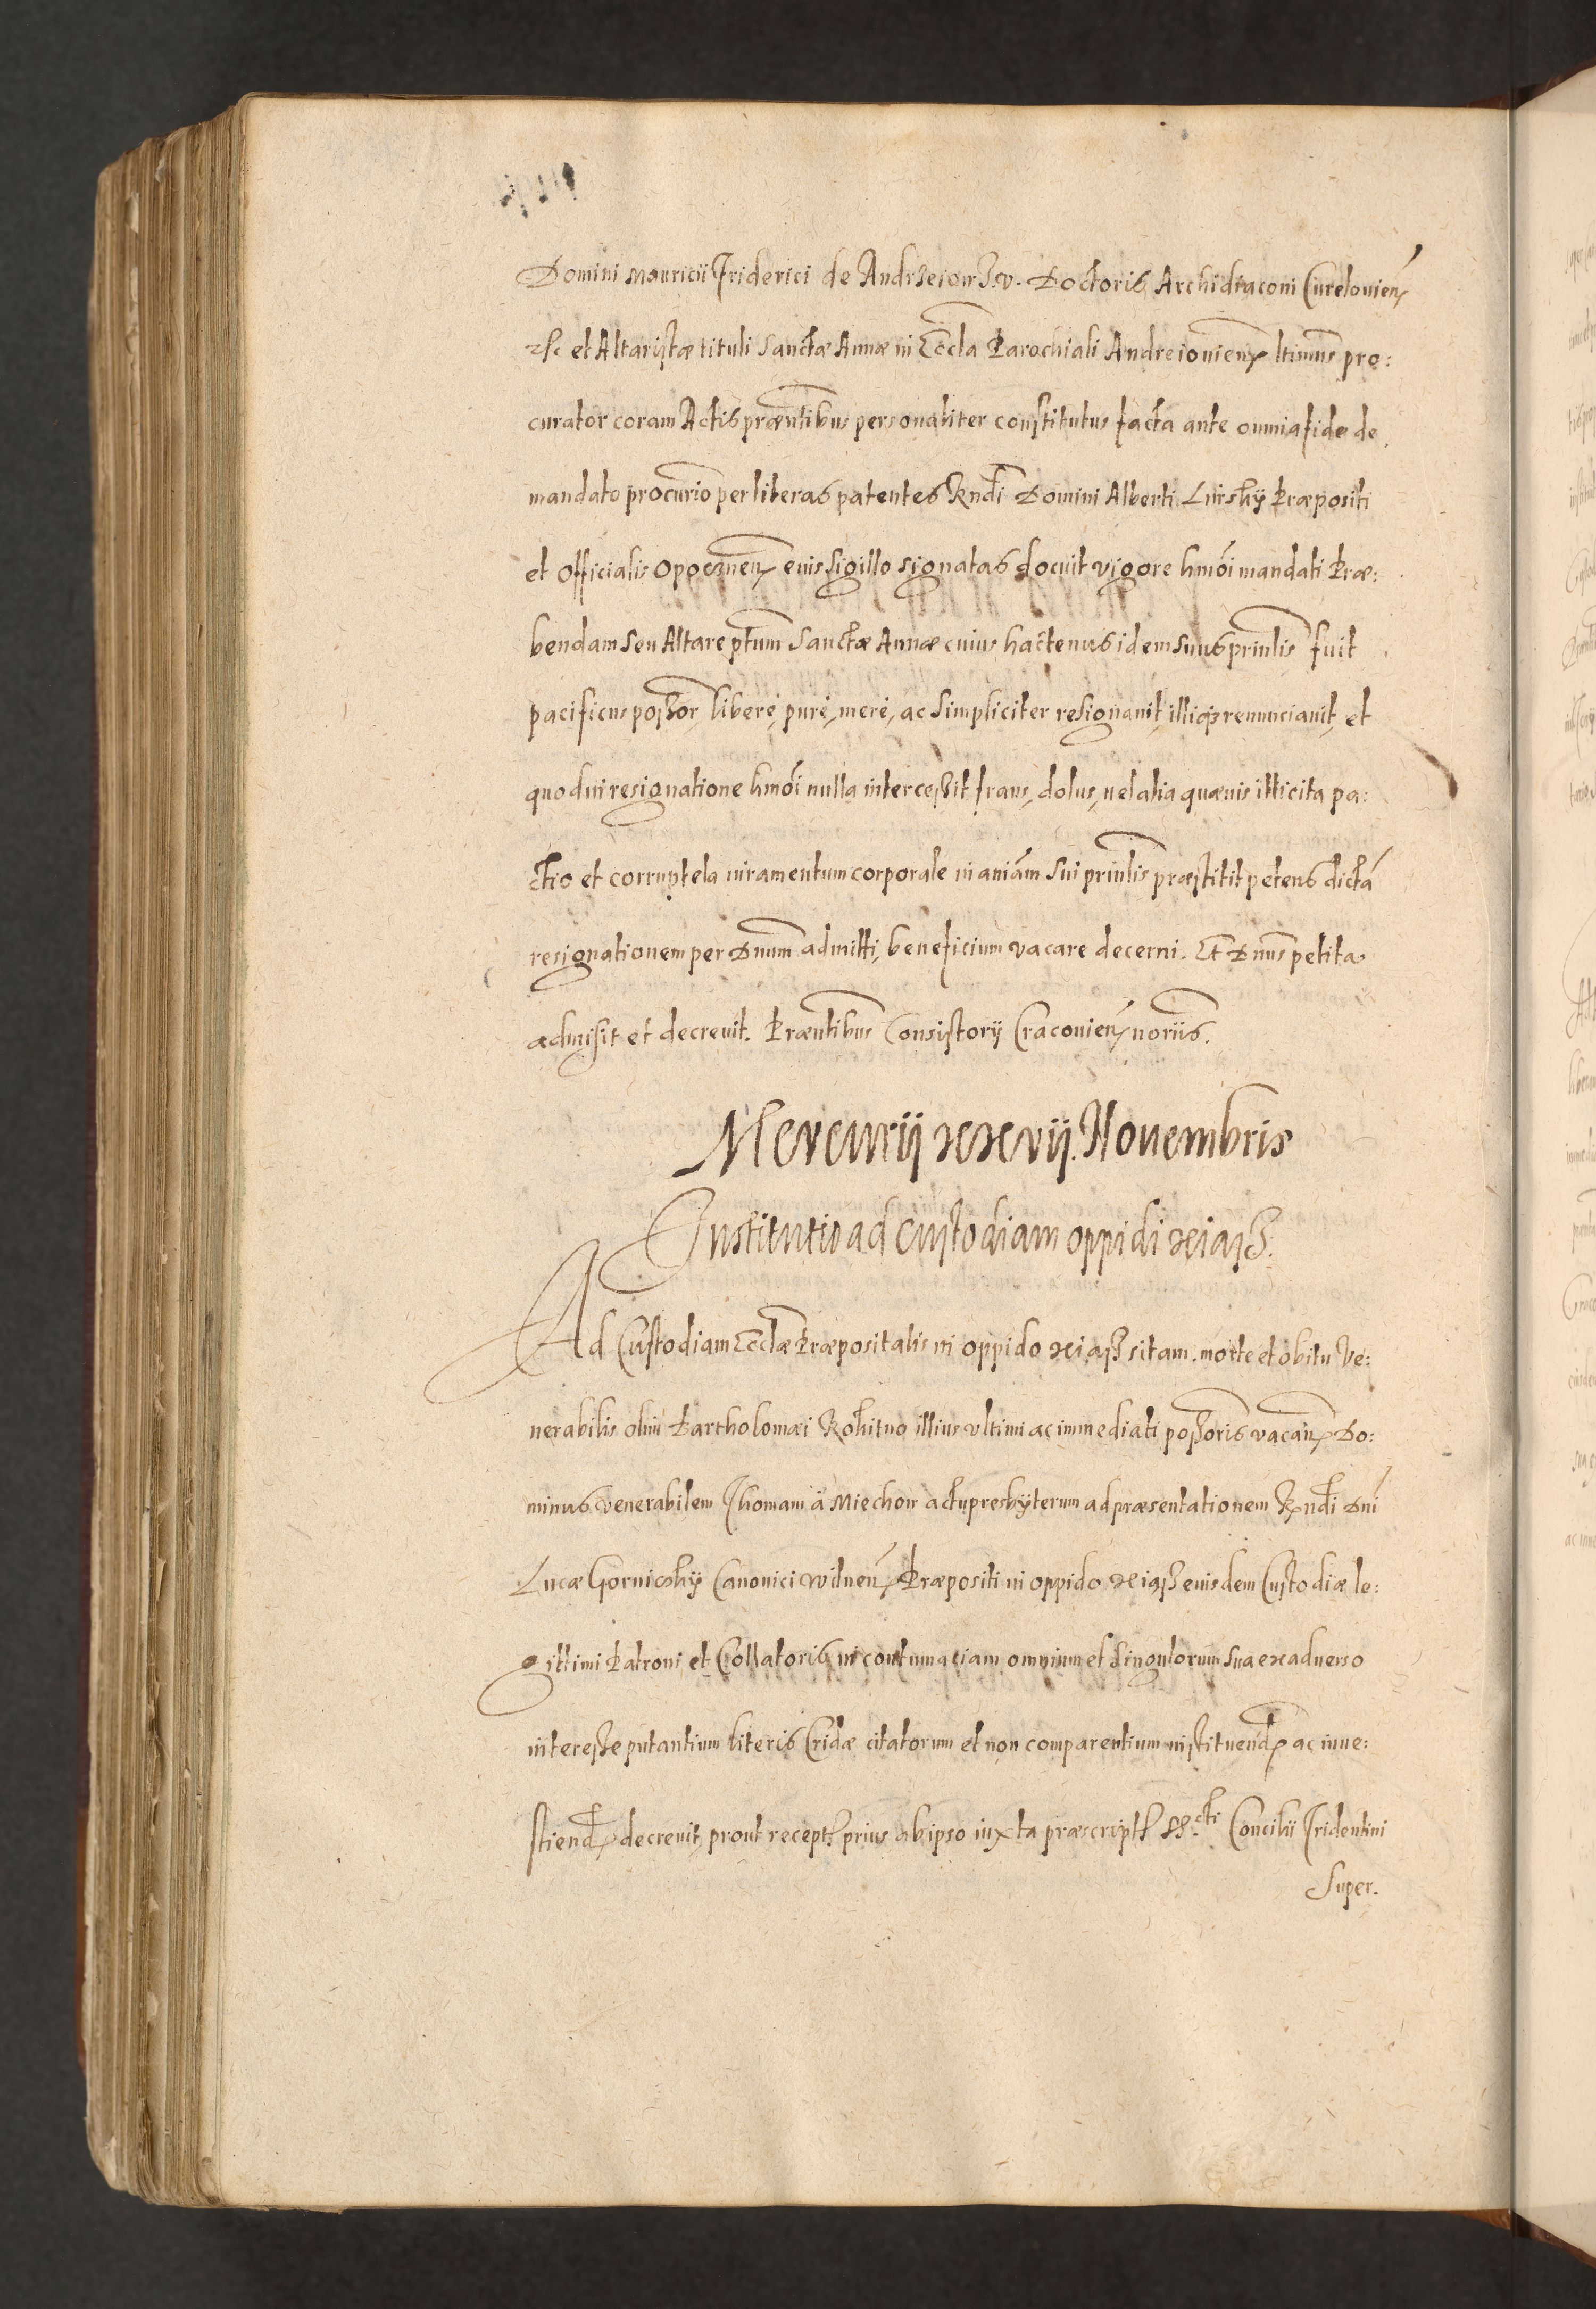 Domini Mauricii Friderici de Andrzeiow J. v. Doctoris Archidiaconi Curelouien̄
etc et Altaristæ tituli Sanctæ Annæ in Eccła Parochiali Andreiouien̄ ltimus pro:
curator coram Actis præntibus personaliter constitutus facta ante omnia fide de
mandato procurio per literas patentes Rndi Domini Alberti Lirsky Præpositi
et Officialis Opocznen̄ eius sigillo signatas docuit vigore hmoi mandati Præ:
bendam seu Altare ptum Sanctæ Annæ cuius hactenus idem suus prinlis fuit
pacificus possor, liberè, purè, merè, ac simpliciter resignauit, illiq3 renunciauit, et
quod in resignatione hmoi nulla intercessit fraus, dolus, uel alia quæuis illicita pa:
ctio et corruptela iuramentum corporale in aniam sui prinlis præstitit petens dictā
resignationem per Dnum admitti, beneficium vacare decerni. Et Dnus petita
admisit et decreuit. Præntibus Consistorij Cracouien̄ noriis.
Mercurij xxvij. Nouembris
Institutio ad Custodiam oppidi xiąsz.
Ad Custodiam Eccłæ Præpositalis in oppido xiąsz sitam. morte et obitu Ve:
nerabilis olim Bartholomæi Rokitno illius vltimi ac immediati possoris vacan̄ Do:
minus venerabilem Thomam à Miechow actu presbyterum ad præsentationem Rndi Dni
Lucæ Gornicsky Canonici Wilnen̄ Præpositi in oppido xiąsz eiusdem Custodiæ le:
gittimi Patroni et Collatoris in contumaciam omnium et singulorum sua ex aduerso
interesse putantium literis Cridæ citatorum et non comparentium instituend̄ ac inue:
stiend̄ decreuit, prout recept̄ prius ab ipso iuxta præscript̄ SS.cti Concilii Tridentini
Super.